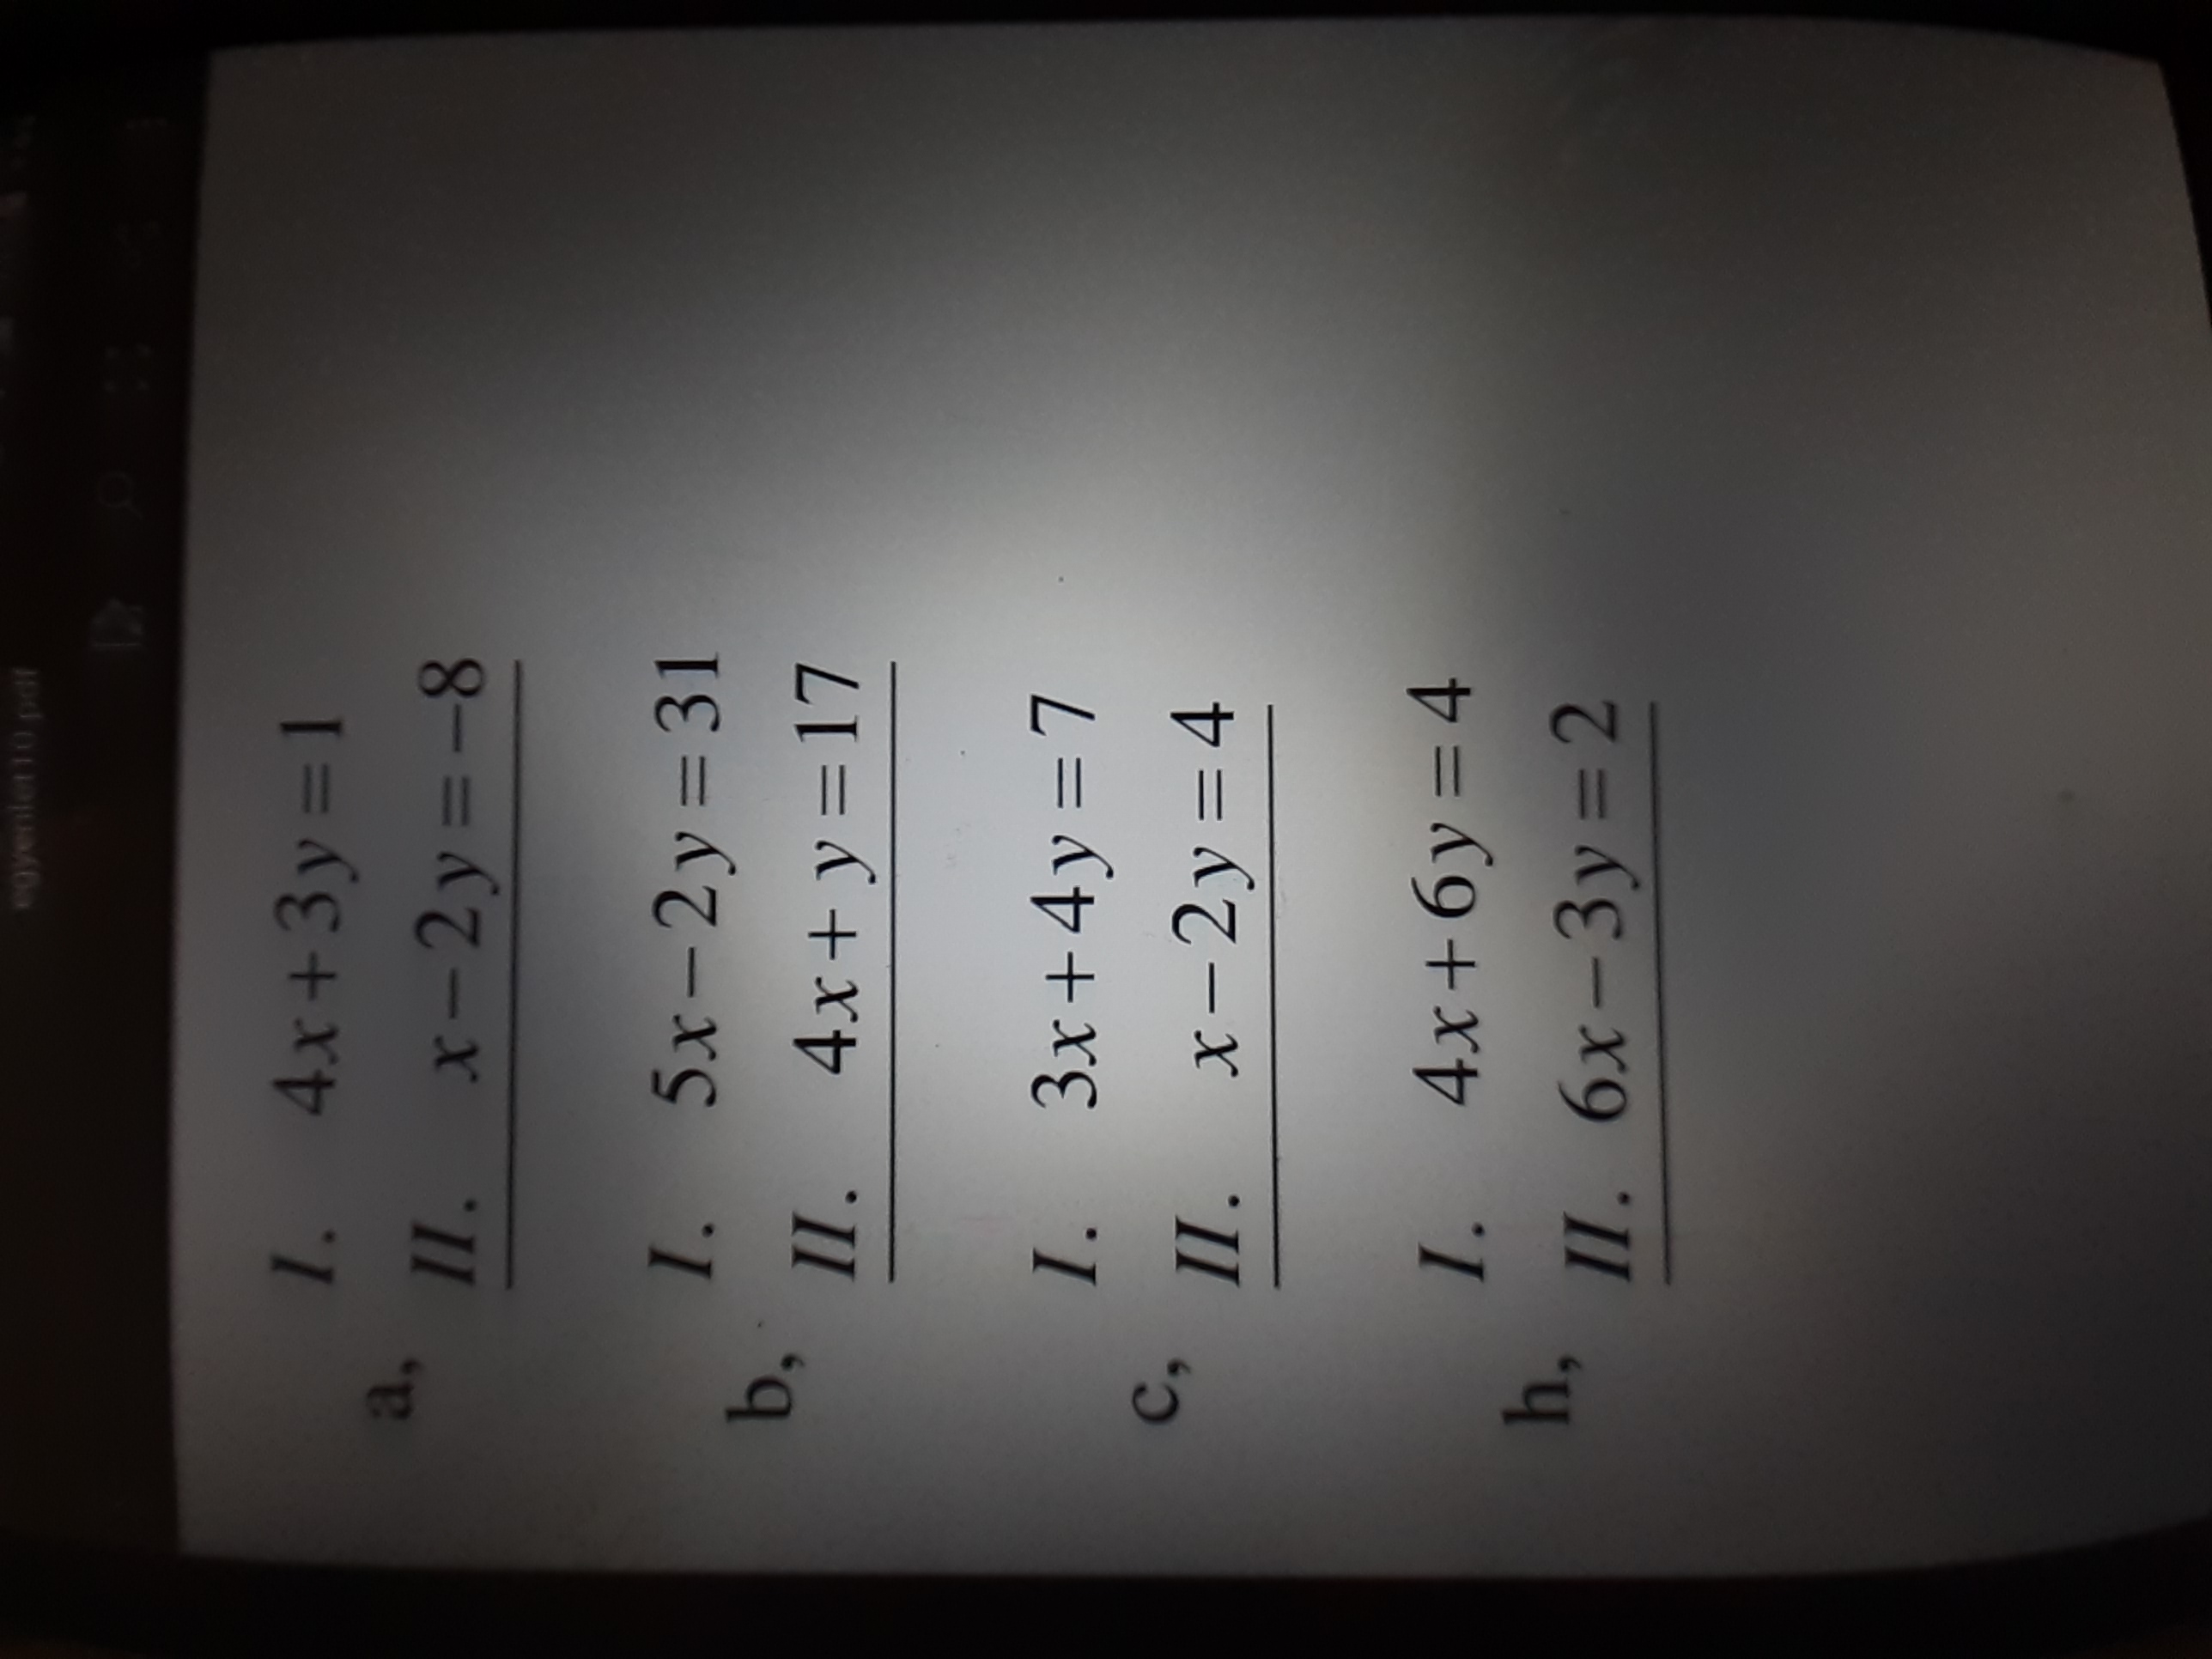 egyenlet10.pdf
I. 4x+3y=1
a,
II. x−2y=−8
I. 5x−2y=31
b,
II. 4x+y=17
I. 3x+4y=7
c,
II. x−2y=4
I. 4x+6y=4
h,
II. 6x−3y=2